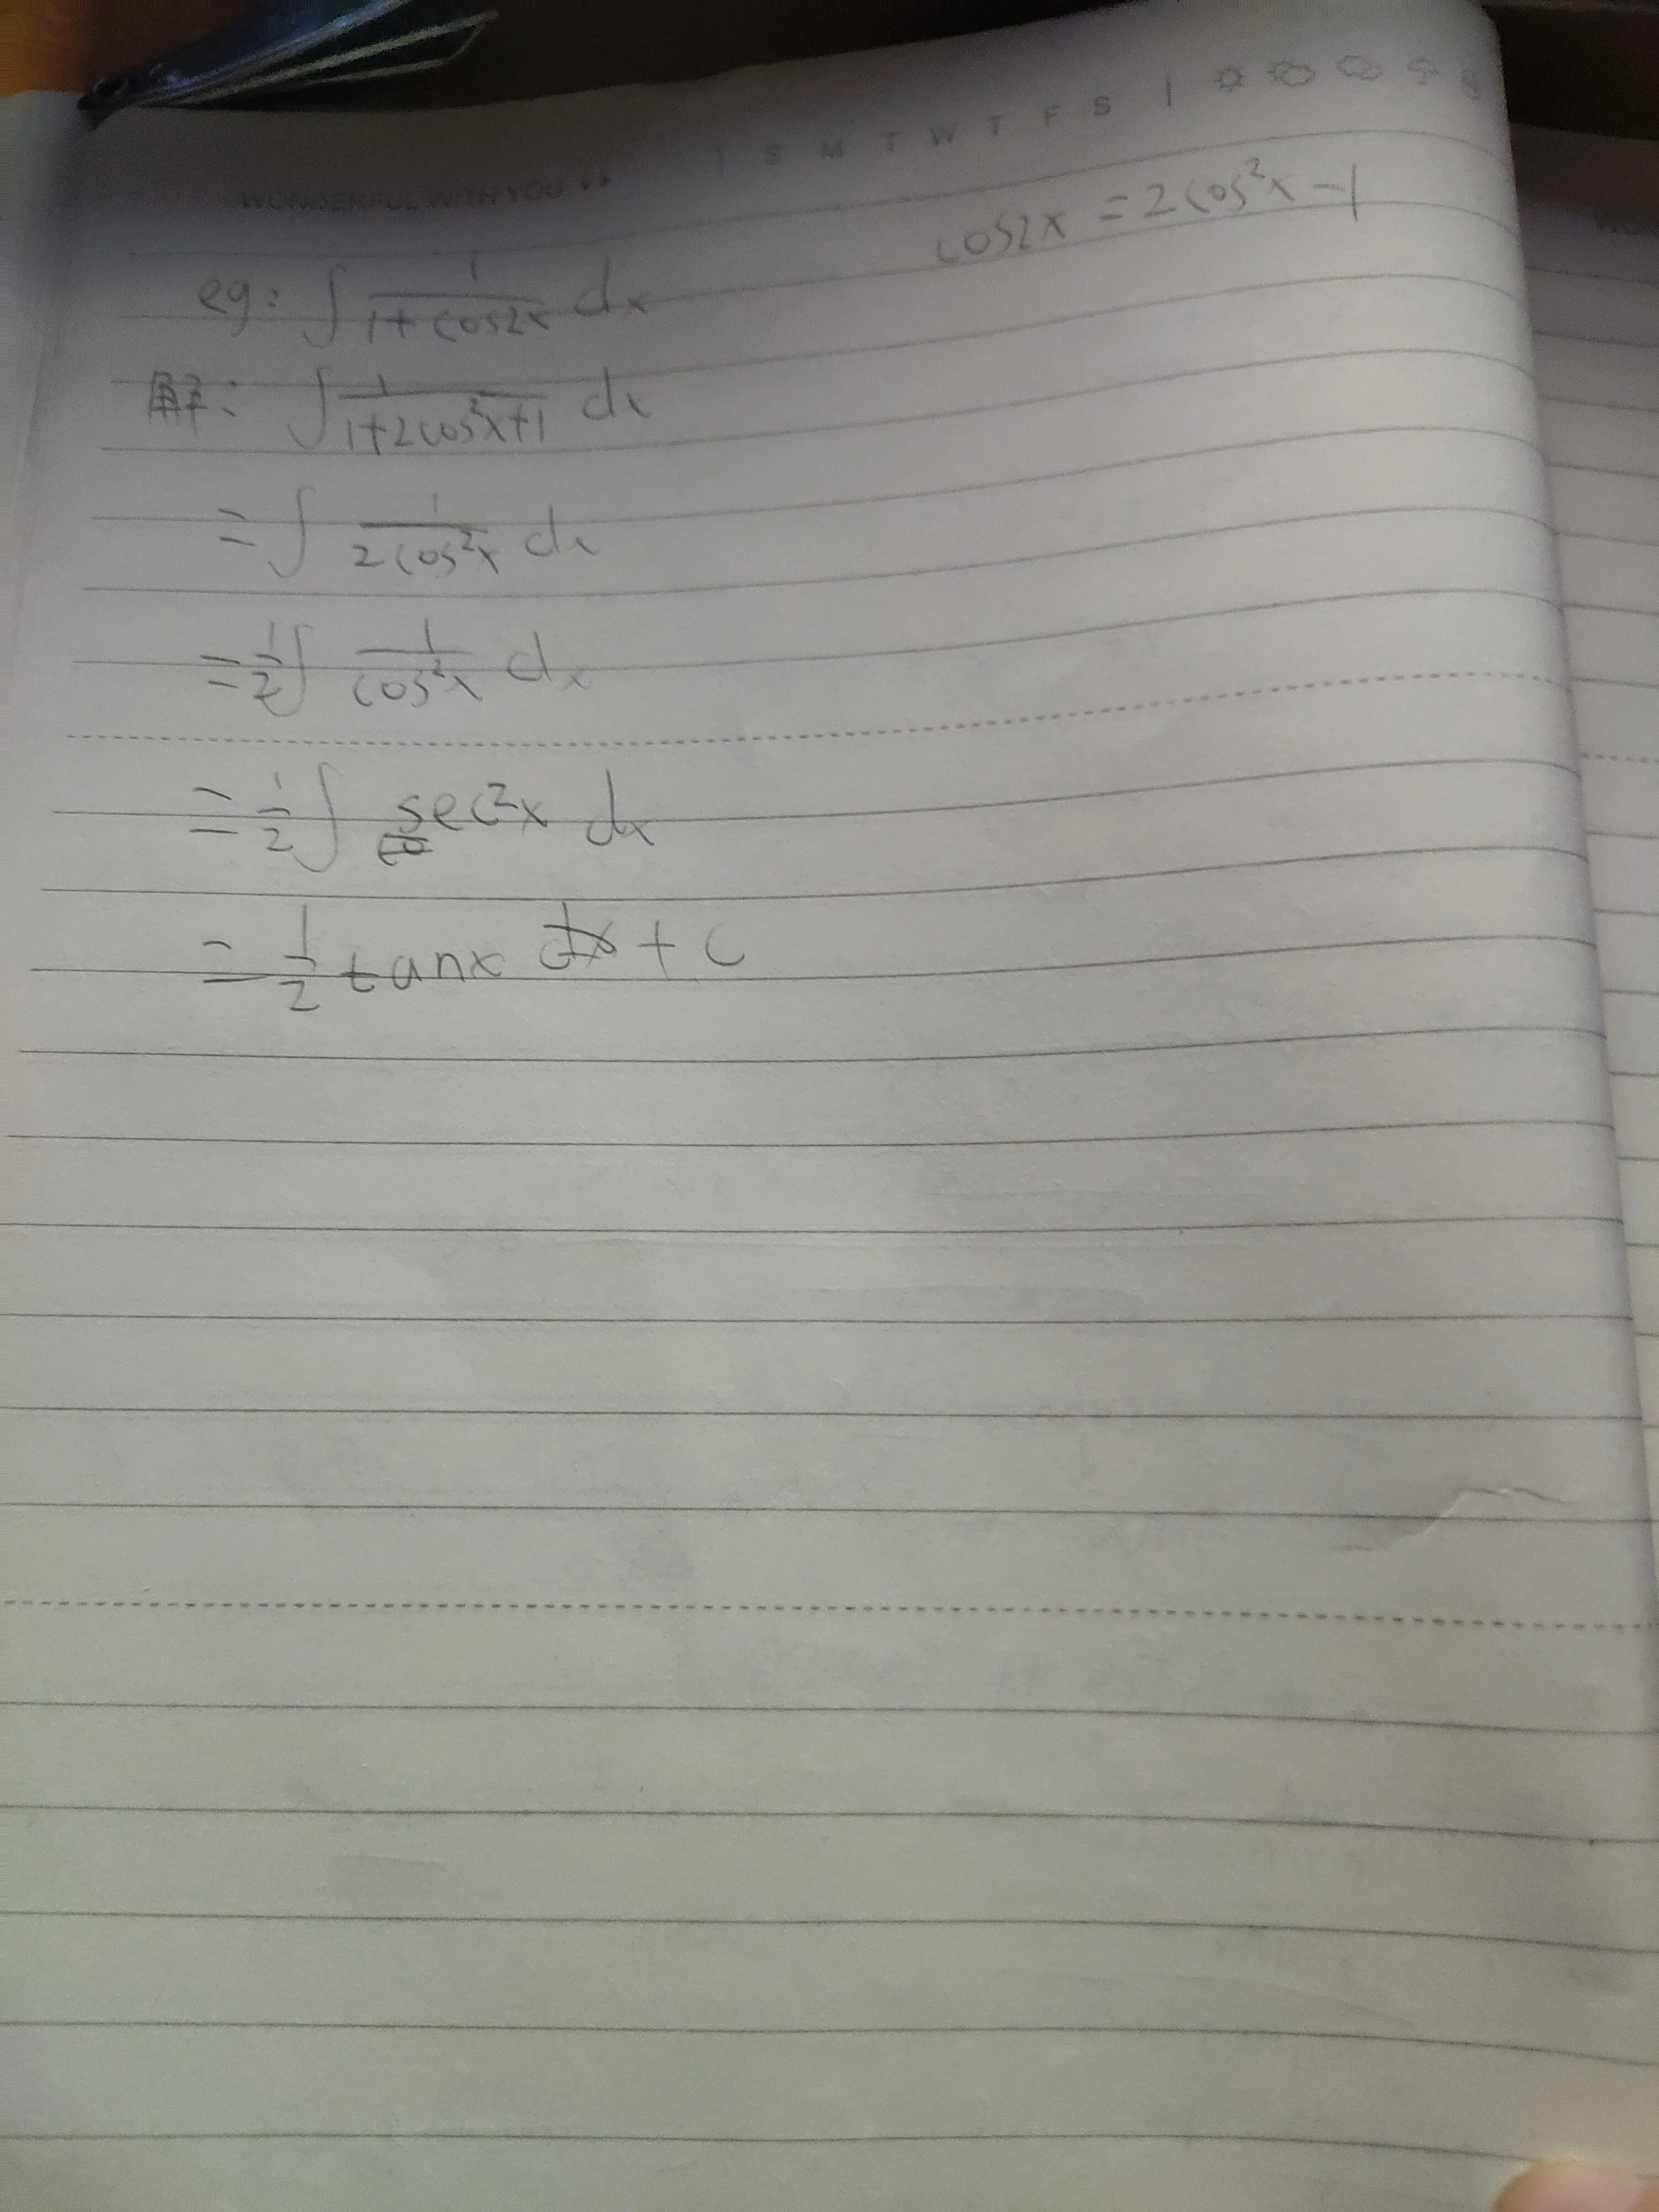 WONDERFUL WITH YOU
S M T W T F S
cos2x = 2cos²x - 1
eg: ∫ 1/(1+cos2x) dx
解: ∫ 1/(1+2cos²x+1) dx
= ∫ 1/(2cos²x) dx
= 1/2 ∫ 1/(cos²x) dx
= 1/2 ∫ sec²x dx
= 1/2 tanx + C